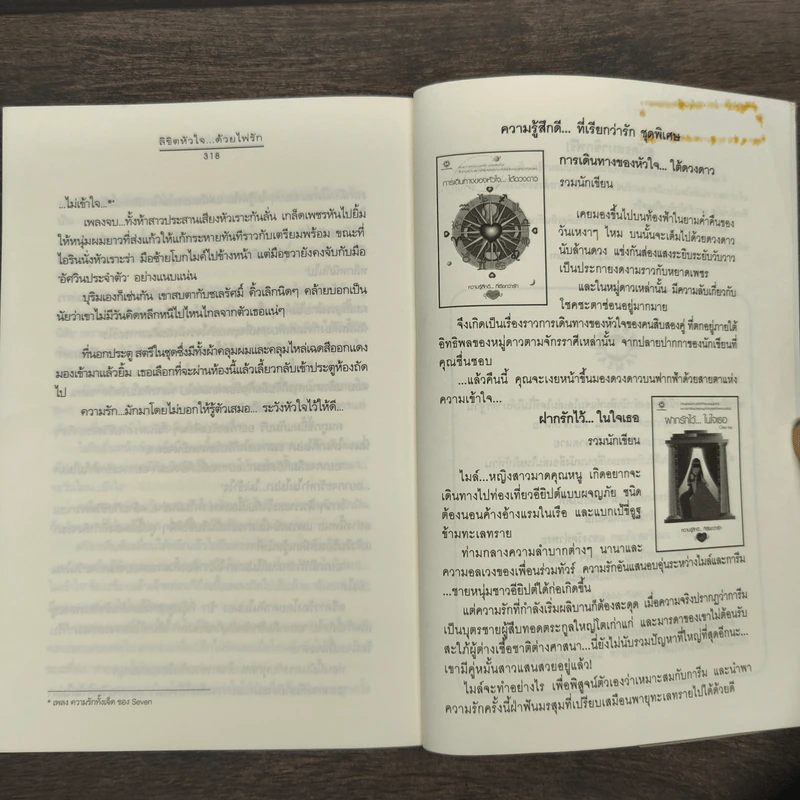 ลิขิตหัวใจ...ด้วยไฟรัก
318
...ไม่เข้าใจ...*"
เพลงจบ...ทั้งห้าสาวประสานเสียงหัวเราะกันลั่น เกล็ดเพชรหันไปยิ้ม
ให้หนุ่มผมยาวที่ส่งแก้วให้แก้กระหายทันทีราวกับเตรียมพร้อม ขณะที่
ไอรินนั่งหัวเราะร่า มือซ้ายโบกไมค์ไปข้างหน้า แต่มือขวายังคงจับกับมือ
'อัศวินประจำตัว' อย่างแนบแน่น
บุริมเองก็เช่นกัน เขาสบตากับชเลรัศมิ์ คิ้วเลิกนิดๆ คล้ายบอกเป็น
นัยว่าเขาไม่มีวันคิดหลีกหนีไปไหนไกลจากตัวเธอแน่ๆ
ที่นอกประตู สตรีในชุดซึ่งมีทั้งผ้าคลุมผมและคลุมไหล่เฉดสีออกแดง
มองเข้ามาแล้วยิ้ม เธอเลือกที่จะผ่านห้องนี้แล้วเลี้ยวกลับเข้าประตูห้องถัด
ไป
ความรัก...มักมาโดยไม่บอกให้รู้ตัวเสมอ... ระวังหัวใจไว้ให้ดี...
* เพลง ความรักทั้งเจ็ด ของ Seven
ความรู้สึกดี... ที่เรียกว่ารัก ชุดพิเศษ
การเดินทางของหัวใจ... ใต้ดวงดาว
รวมนักเขียน
การเดินทางของหัวใจ... ใต้ดวงดาว
ความรู้สึกดี... ที่เรียกว่ารัก
เคยมองขึ้นไปบนท้องฟ้าในยามค่ำคืนของ
วันเหงาๆ ไหม บนนั้นจะเต็มไปด้วยดวงดาว
นับล้านดวง แข่งกันส่องแสงระยิบระยับวับวาว
เป็นประกายงดงามราวกับหยาดเพชร
และในหมู่ดาวเหล่านั้น มีความลับเกี่ยวกับ
โชคชะตาซ่อนอยู่มากมาย
จึงเกิดเป็นเรื่องราวการเดินทางของหัวใจของคนสิบสองคู่ ที่ตกอยู่ภายใต้
อิทธิพลของหมู่ดาวตามจักรราศีเหล่านั้น จากปลายปากกาของนักเขียนที่
คุณชื่นชอบ
...แล้วคืนนี้ คุณจะเงยหน้าขึ้นมองดวงดาวบนฟากฟ้าด้วยสายตาแห่ง
ความเข้าใจ...
ฝากรักไว้... ในใจเธอ
รวมนักเขียน
ฝากรักไว้... ในใจเธอ
ความรู้สึกดี... ที่เรียกว่ารัก
ไมล์...หญิงสาวมาดคุณหนู เกิดอยากจะ
เดินทางไปท่องเที่ยวอียิปต์แบบผจญภัย ชนิด
ต้องนอนค้างอ้างแรมในเรือ และแบกเป้ขี่อูฐ
ข้ามทะเลทราย
ท่ามกลางความลำบากต่างๆ นานาและ
ความอลเวงของเพื่อนร่วมทัวร์ ความรักอันแสนอบอุ่นระหว่างไมล์และการีม
...ชายหนุ่มชาวอียิปต์ได้ก่อเกิดขึ้น
แต่ความรักที่กำลังเริ่มผลิบานก็ต้องสะดุด เมื่อความจริงปรากฏว่าการีม
เป็นบุตรชายผู้สืบทอดตระกูลใหญ่โตเก่าแก่ และมารดาของเขาไม่ต้อนรับ
สะใภ้ผู้ต่างเชื้อชาติต่างศาสนา...นี่ยังไม่นับรวมปัญหาที่ใหญ่ที่สุดอีกนะ...
เขามีคู่หมั้นสาวแสนสวยอยู่แล้ว!
ไมล์จะทำอย่างไร เพื่อพิสูจน์ตัวเองว่าเหมาะสมกับการีม และนำพา
ความรักครั้งนี้ฝ่าฟันมรสุมที่เปรียบเสมือนพายุทะเลทรายไปได้ด้วยดี